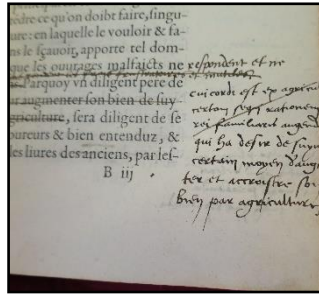 rèdre ce qu'on doibt faire, singu-
ure: en laquelle le vouloir & fa-
ns le sçauoir, apporte tel dom-
que les ouurages malfaicts ne
respondent et ne
Parquoy vn diligent pere de
ur augmenter son bien de suy-
griculture, sera diligent de se
oureurs & bien entenduz, &
es liures des anciens, par les-
B iij
cui cordi est ex agricu
certam rationem
rei familiaris augend
qui ha desir de suyu
certain moyen d'aug
ter et accroistre so
bien par agriculture